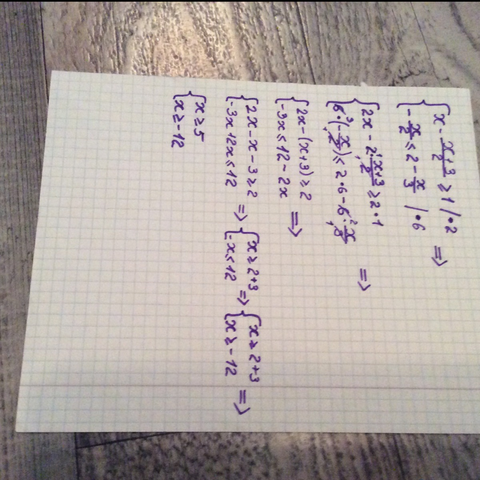 { x - (x+3)/2 ≥ 1 | · 2
{ -x/2 ≤ 2 - x/3 | · 6 =>
{ 2x - 2¹ · (x+3)/2₁ ≥ 2 · 1
{ 6³ · (-x/2₁) ≤ 2 · 6 - 6² · x/3₁ =>
{ 2x - (x+3) ≥ 2
{ -3x ≤ 12 - 2x =>
{ 2x - x - 3 ≥ 2 => { x ≥ 2+3 => { x ≥ 2+3 =>
{ -3x + 2x ≤ 12 { -x ≤ 12 { x ≥ -12
{ x ≥ 5
{ x ≥ -12